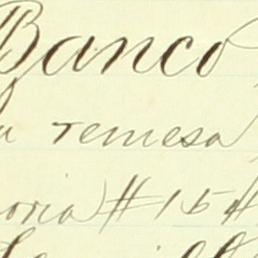 Banco
remesa
oria # 15 #